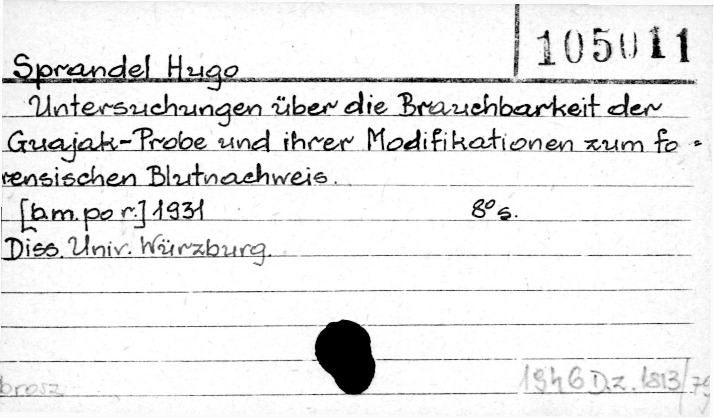 105011
Sprandel Hugo
Untersuchungen über die Brauchbarkeit der
Guajak-Probe und ihrer Modifikationen zum fo=
rensischen Blutnachweis.
[b.m.po r.] 1931 8° s.
Diss. Univ. Würzburg.
brosz 1946 D.z. 1813/79